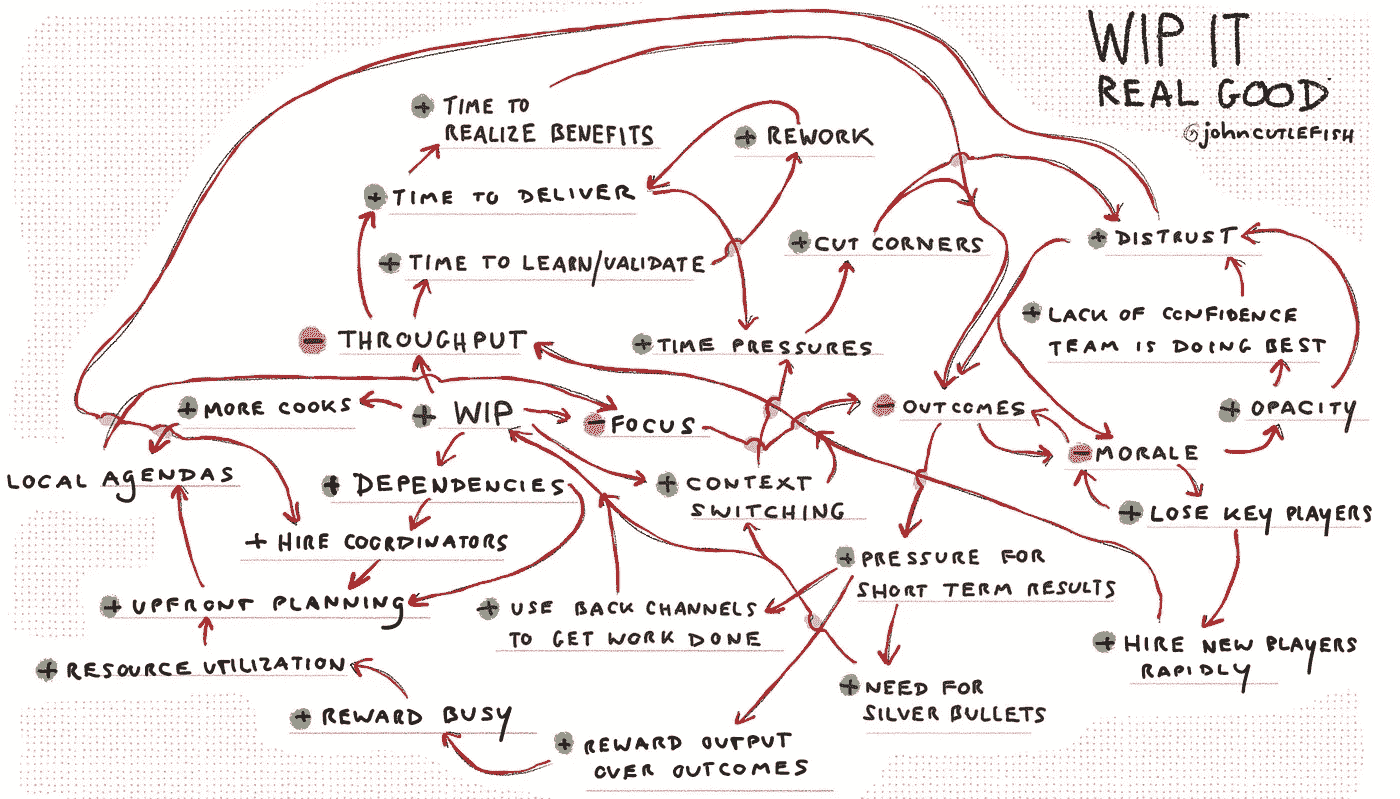 WIP IT
REAL GOOD
@johnCUTLEFISH
+ TIME TO
REALIZE BENEFITS
+ REWORK
+ TIME TO DELIVER
+ CUT CORNERS
+ DISTRUST
+ TIME TO LEARN/VALIDATE
+ LACK OF CONFIDENCE
TEAM IS DOING BEST
- THROUGHPUT
+ TIME PRESSURES
+ MORE COOKS
+ WIP
- FOCUS
- OUTCOMES
+ OPACITY
- MORALE
LOCAL AGENDAS
+ DEPENDENCIES
+ CONTEXT
SWITCHING
+ LOSE KEY PLAYERS
+ HIRE COORDINATORS
+ PRESSURE FOR
SHORT TERM RESULTS
+ UPFRONT PLANNING
+ USE BACK CHANNELS
TO GET WORK DONE
+ HIRE NEW PLAYERS
RAPIDLY
+ RESOURCE UTILIZATION
+ NEED FOR
SILVER BULLETS
+ REWARD BUSY
+ REWARD OUTPUT
OVER OUTCOMES